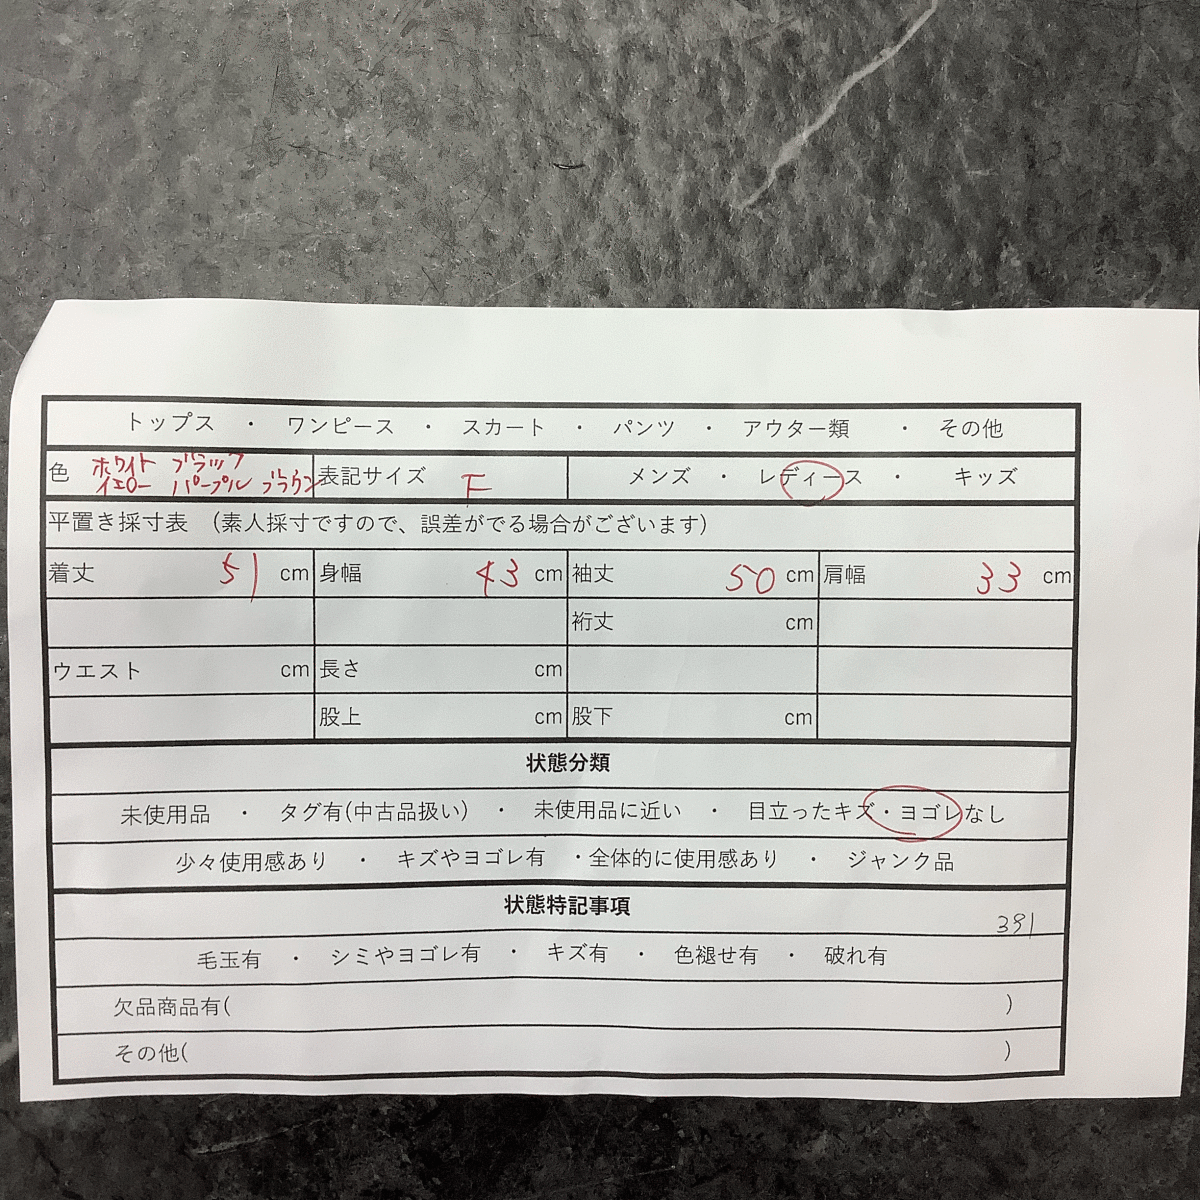 トップス ・ ワンピース ・ スカート ・ パンツ ・ アウター類 ・ その他
色 ホワイト ブラック
イエロー パープル ブラウン
表記サイズ F
メンズ ・ レディース ・ キッズ
平置き採寸表 （素人採寸ですので、誤差がでる場合がございます）
着丈 51 cm 身幅 43 cm 袖丈 50 cm 肩幅 33 cm
裄丈 cm
ウエスト cm 長さ cm
股上 cm 股下 cm
状態分類
未使用品 ・ タグ有(中古品扱い) ・ 未使用品に近い ・ 目立ったキズ・ヨゴレなし
少々使用感あり ・ キズやヨゴレ有 ・全体的に使用感あり ・ ジャンク品
状態特記事項
391
毛玉有 ・ シミやヨゴレ有 ・ キズ有 ・ 色褪せ有 ・ 破れ有
欠品商品有( )
その他( )